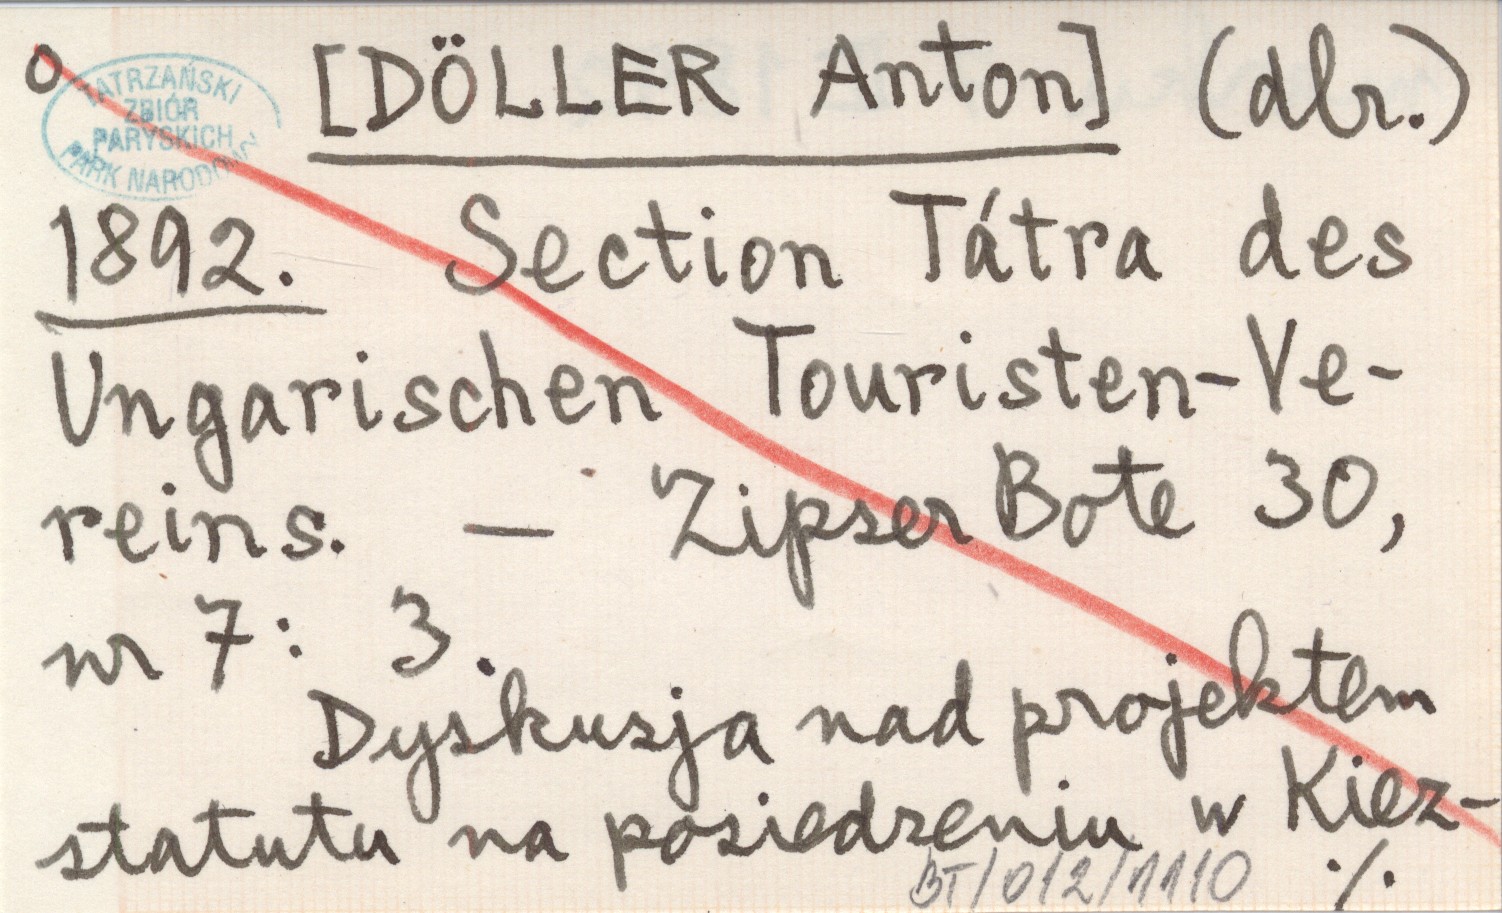 o
TATRZAŃSKI
ZBIÓR
PARYSKICH
PARK NARODOWY
[DÖLLER Anton] (dbr.)
1892. Section Tátra des
Ungarischen Touristen-Ve-
reins. — Zipser Bote 30,
nr 7: 3.
Dyskusja nad projektem
statutu na posiedzeniu w Kiez-
BT/012/1110 ./.